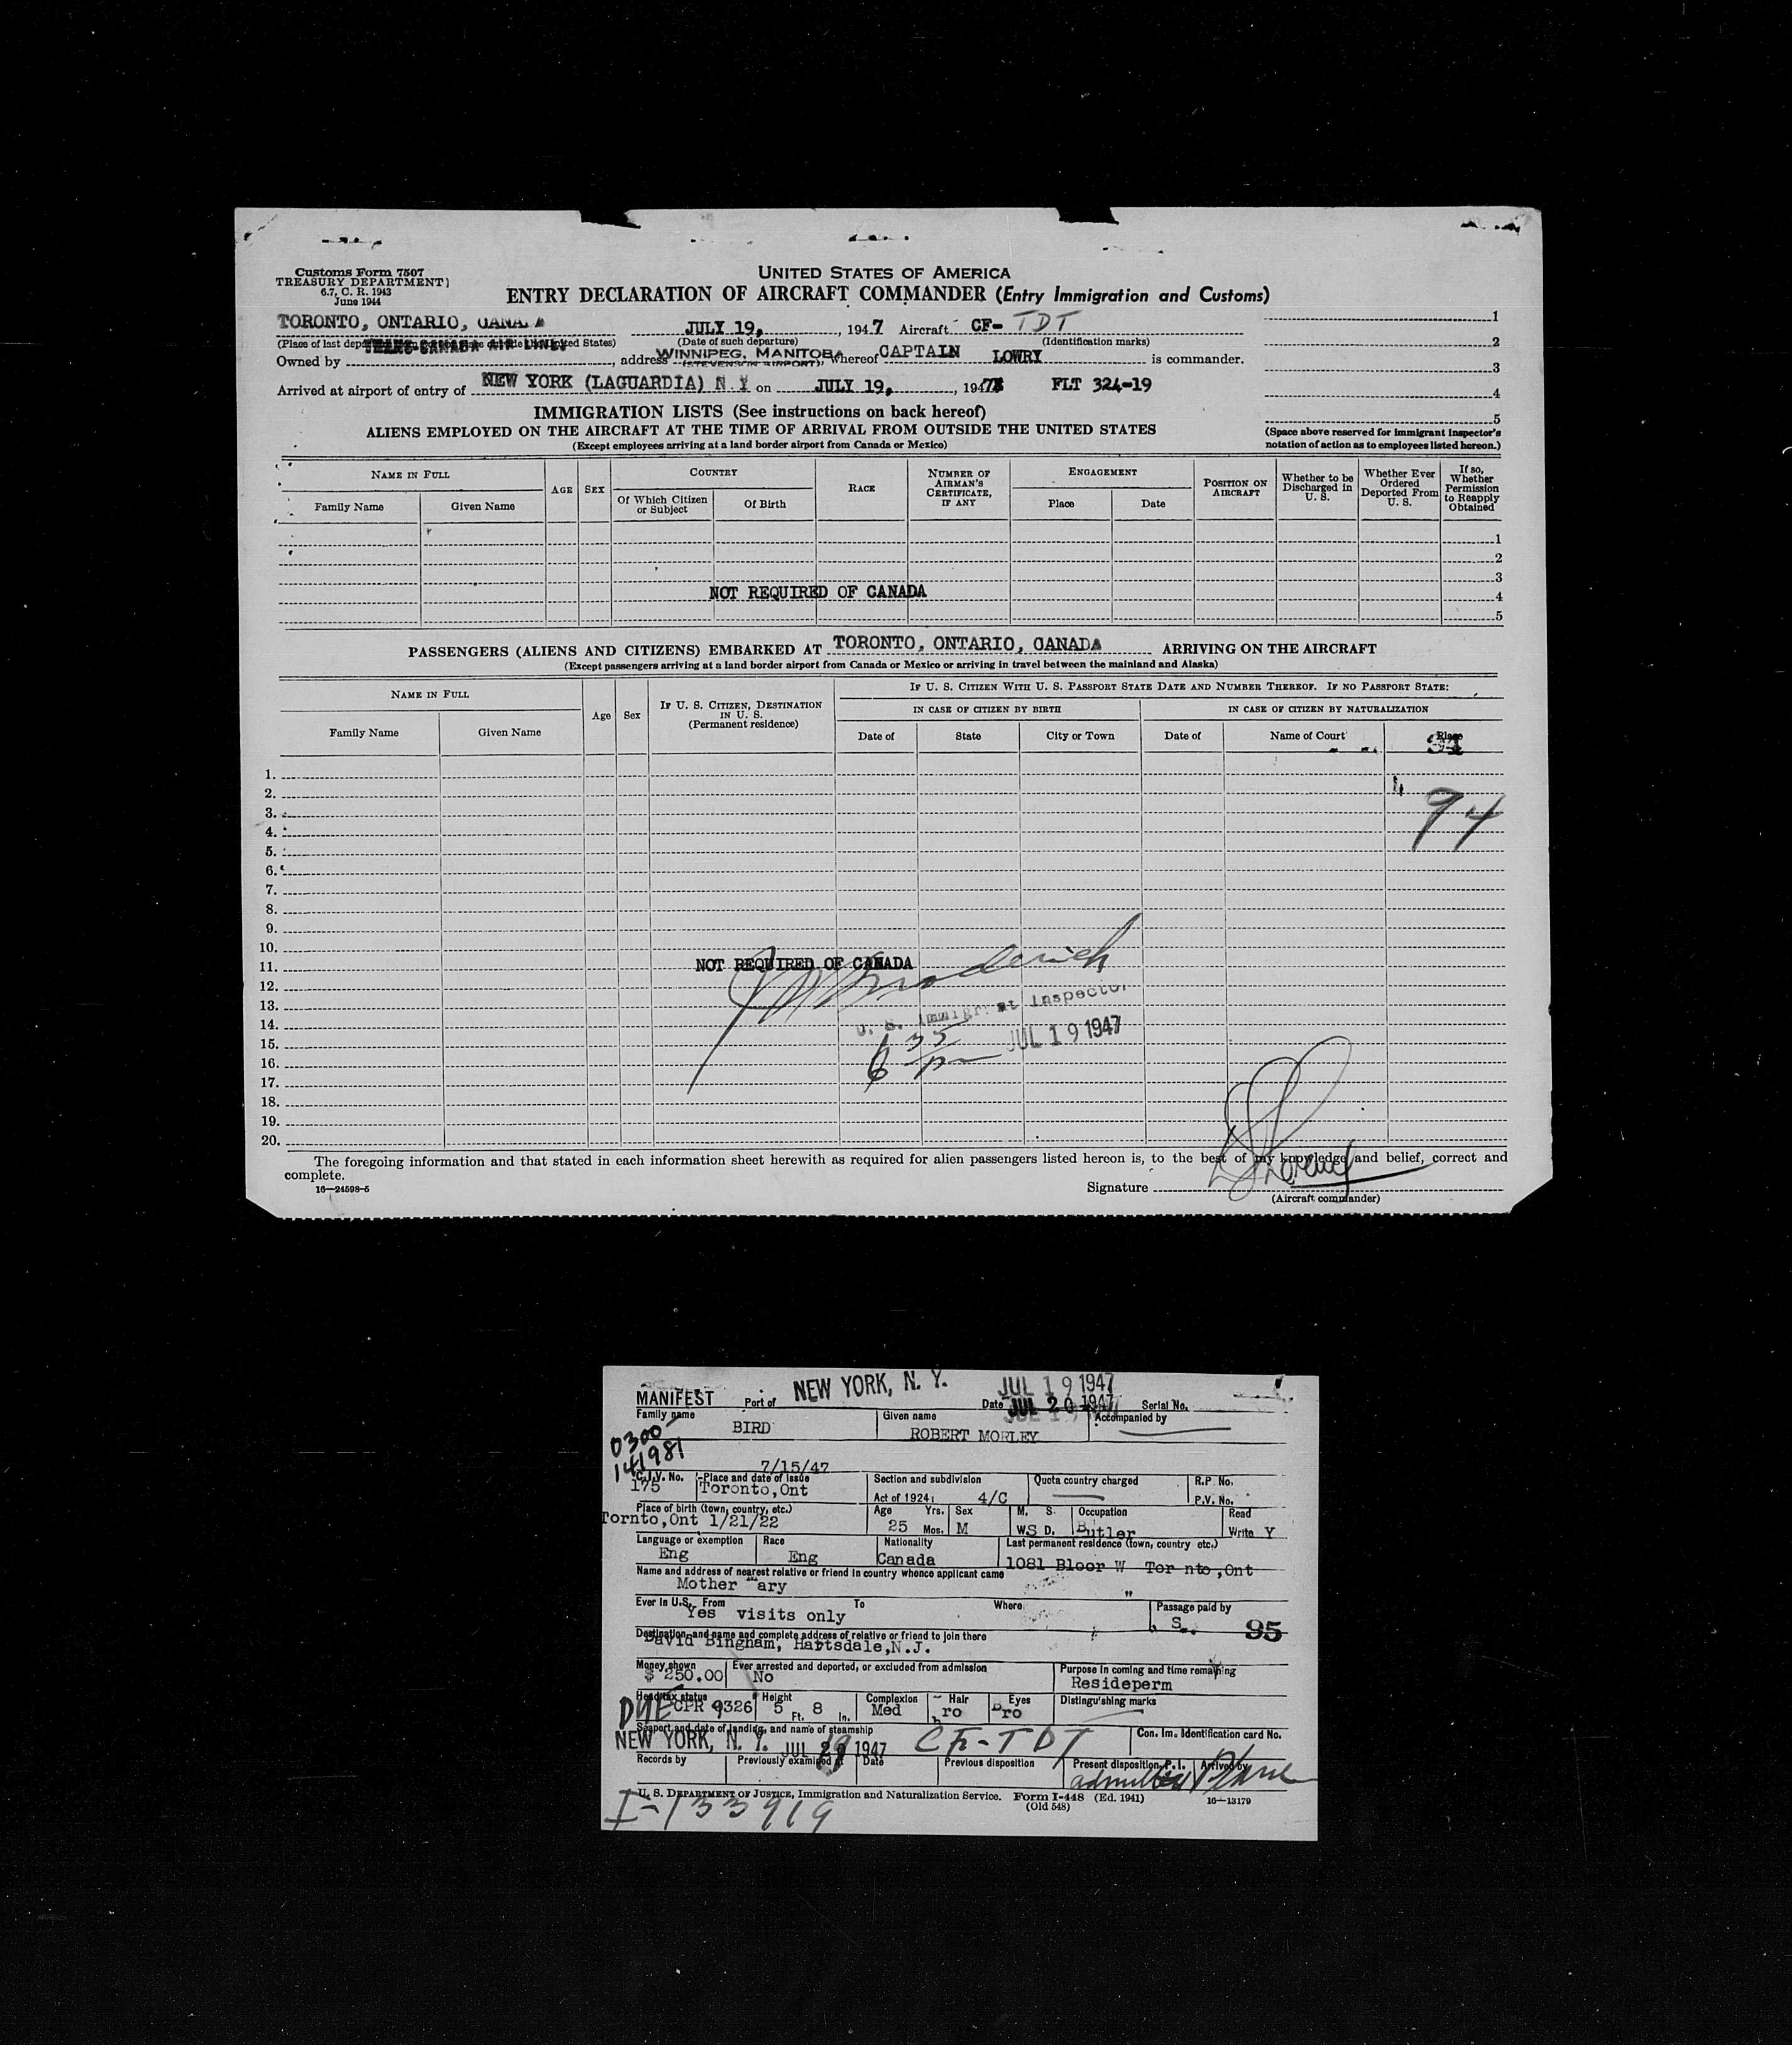 Customs Form 7507
TREASURY DEPARTMENT)
6.7, C. R. 1943
June 1944
UNITED STATES OF AMERICA
ENTRY DECLARATION OF AIRCRAFT COMMANDER (Entry Immigration and Customs)
TORONTO, ONTARIO, CANADA JULY 19, , 1947 Aircraft CF-TDT
(Place of last departure outside the United States) (Date of such departure) (Identification marks)
TRANS-CANADA AIR LINES
Owned by , address WINNIPEG, MANITOBA (STEVENSON AIRPORT), whereof CAPTAIN LOWRY is commander.
Arrived at airport of entry of NEW YORK (LAGUARDIA) N.Y on JULY 19, , 1947 FLT 324-19
1
2
3
4
5
(Space above reserved for immigrant inspector's notation of action as to employees listed hereon.)
IMMIGRATION LISTS (See instructions on back hereof)
ALIENS EMPLOYED ON THE AIRCRAFT AT THE TIME OF ARRIVAL FROM OUTSIDE THE UNITED STATES
(Except employees arriving at a land border airport from Canada or Mexico)
NAME IN FULL
Family Name Given Name
AGE SEX
COUNTRY
Of Which Citizen or Subject Of Birth
RACE
NUMBER OF AIRMAN'S CERTIFICATE, IF ANY
ENGAGEMENT
Place Date
POSITION ON AIRCRAFT
Whether to be Discharged in U. S.
Whether Ever Ordered Deported From U. S.
If so, Whether Permission to Reapply Obtained
1
2
3
NOT REQUIRED OF CANADA 4
5
PASSENGERS (ALIENS AND CITIZENS) EMBARKED AT TORONTO, ONTARIO, CANADA ARRIVING ON THE AIRCRAFT
(Except passengers arriving at a land border airport from Canada or Mexico or arriving in travel between the mainland and Alaska)
NAME IN FULL
Family Name Given Name
Age Sex
IF U. S. CITIZEN, DESTINATION IN U. S.
(Permanent residence)
IF U. S. CITIZEN WITH U. S. PASSPORT STATE DATE AND NUMBER THEREOF. IF NO PASSPORT STATE:
IN CASE OF CITIZEN BY BIRTH IN CASE OF CITIZEN BY NATURALIZATION
Date of State City or Town Date of Name of Court Place
94
1.
2.
3. 94
4.
5.
6.
7.
8.
9.
10.
11. NOT REQUIRED OF CANADA
12.
13. U. S. Immigrant Inspector
14.
15. JUL 19 1947
16. 6 35 p
17.
18.
19.
20.
The foregoing information and that stated in each information sheet herewith as required for alien passengers listed hereon is, to the best of my knowledge and belief, correct and
complete.
16—24598-5
Signature
(Aircraft commander)
MANIFEST Port of NEW YORK, N. Y. Date JUL 19 1947 JUL 20 1947 Serial No.
Family name BIRD Given name ROBERT MORLEY Accompanied by
0300
141981
7/15/47
C.I.V. No. 175 Place and date of issue Toronto,Ont Section and subdivision Act of 1924: 4/C Quota country charged R.P. No.
P.V. No.
Place of birth (town, country, etc.) Tornto,Ont 1/21/22 Age 25 Yrs. Mos. Sex M M. S. WS D. Occupation Butler Read Write Y
Language or exemption Eng Race Eng Nationality Canada Last permanent residence (town, country etc.) 1081 Bloor W Tor nto,Ont
Name and address of nearest relative or friend in country whence applicant came
Mother ary "
Ever in U.S. Yes visits only From To Where Passage paid by S 95
Destination, and name and complete address of relative or friend to join there
David Bingham, Hartsdale,N.J.
Money shown $ 250.00 Ever arrested and deported, or excluded from admission No Purpose in coming and time remaining Resideperm
Head tax status DUE CPR 9326 Height 5 Ft. 8 In. Complexion Med Hair bro Eyes Bro Distinguishing marks
Seaport and date of landing, and name of steamship NEW YORK, N. Y. JUL 1947 CF-TDT Con. Im. Identification card No.
Records by Previously examined at Date Previous disposition Present disposition, P. I. admitted Arrived by Plane
U. S. DEPARTMENT OF JUSTICE, Immigration and Naturalization Service. Form I-448 (Ed. 1941) 16—13179
(Old 548)
I-133919